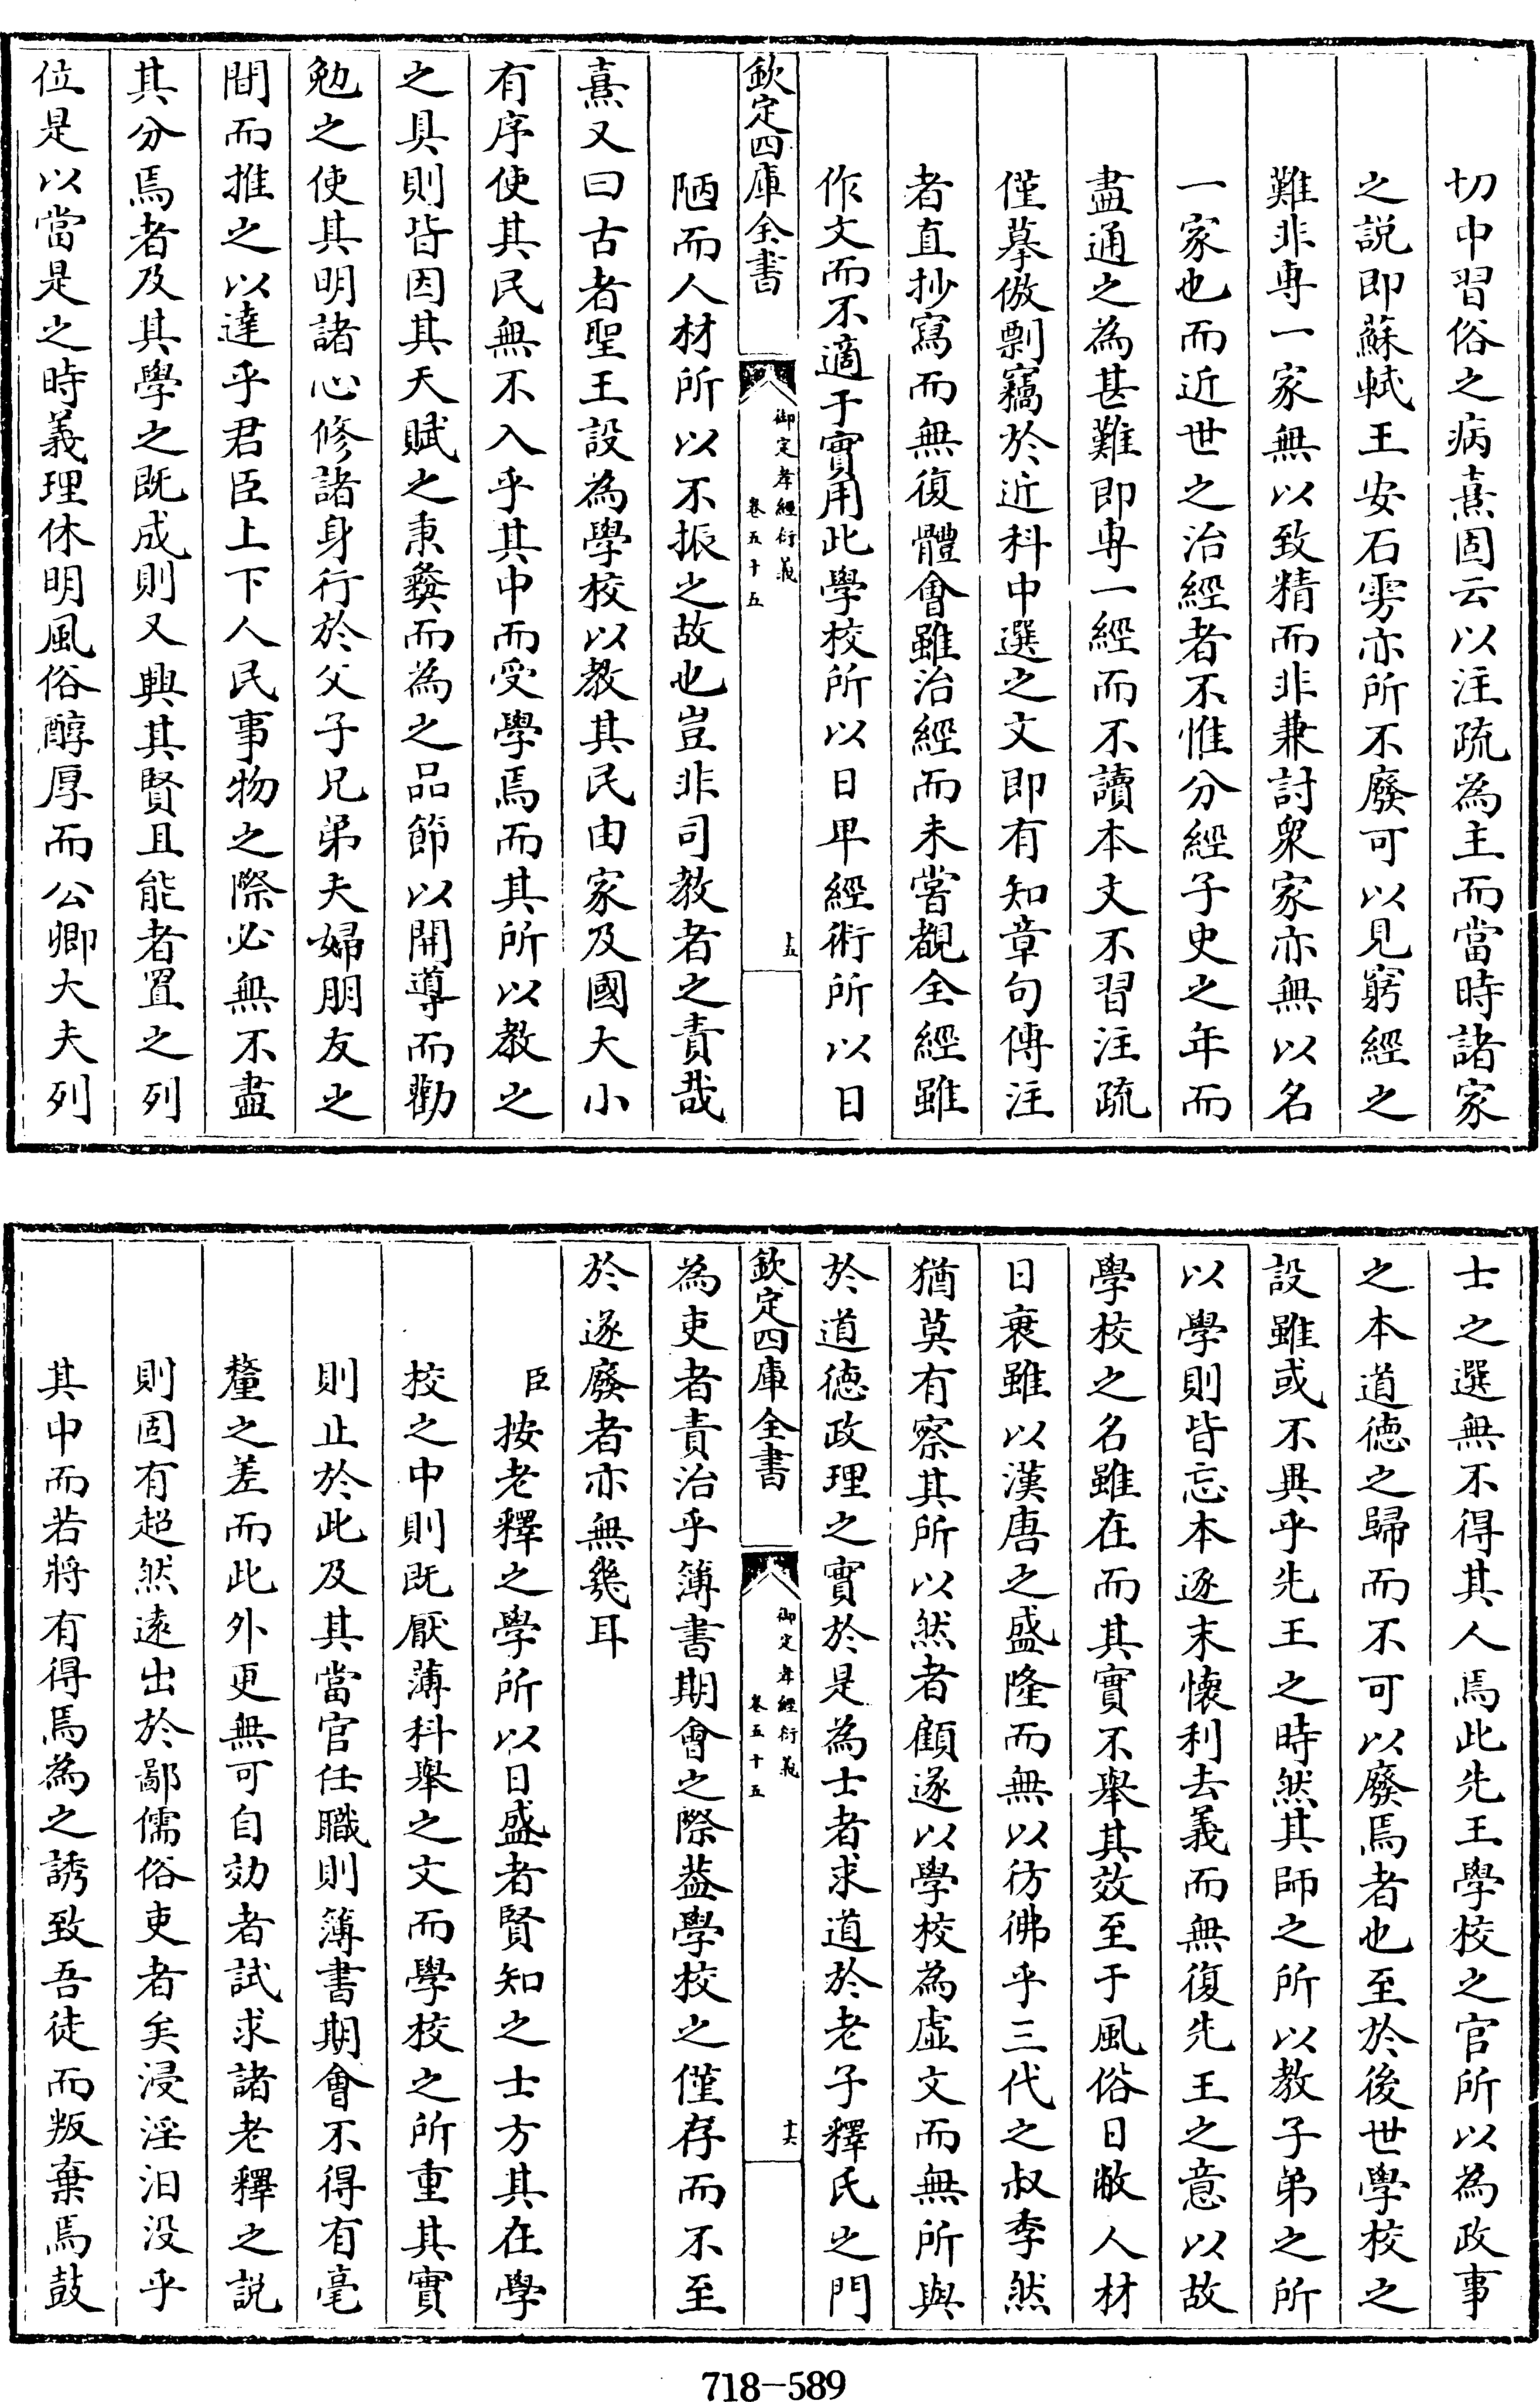 切中習俗之病熹固云以注疏為主而當時諸家
之説即蘇軾王安石雱亦所不廢可以見窮經之
難非専一家無以致精而非兼討衆家亦無以名
一家也而近世之治經者不惟分經子史之年而
盡通之為甚難即専一經而不讀本文不習注疏
僅摹倣剽竊於近科中選之文即有知章句傳注
者直抄寫而無復體會雖治經而未嘗覩全經雖
作文而不適于實用此學校所以日卑經術所以日
欽定四庫全書
御定孝經衍義
卷五十五
十五
陋而人材所以不振之故也豈非司教者之責哉
熹又曰古者聖王設為學校以教其民由家及國大小
有序使其民無不入乎其中而受學焉而其所以教之
之具則皆因其天賦之秉彝而為之品節以開導而勸
勉之使其明諸心修諸身行於父子兄弟夫婦朋友之
間而推之以達乎君臣上下人民事物之際必無不盡
其分焉者及其學之既成則又興其賢且能者置之列
位是以當是之時義理休明風俗醇厚而公卿大夫列
士之選無不得其人焉此先王學校之官所以為政事
之本道德之歸而不可以廢焉者也至於後世學校之
設雖或不異乎先王之時然其師之所以教子弟之所
以學則皆忘本逐末懐利去義而無復先王之意以故
學校之名雖在而其實不舉其效至于風俗日敝人材
日衰雖以漢唐之盛隆而無以彷彿乎三代之叔季然
猶莫有察其所以然者顧遂以學校為虛文而無所與
於道德政理之實於是為士者求道於老子釋氏之門
欽定四庫全書
御定孝經衍義
卷五十五
十六
為吏者責治乎簿書期會之際葢學校之僅存而不至
於遂廢者亦無幾耳
臣按老釋之學所以日盛者賢知之士方其在學
校之中則既厭薄科舉之文而學校之所重其實
則止於此及其當官任職則簿書期會不得有毫
釐之差而此外更無可自効者試求諸老釋之説
則固有超然遠出於鄙儒俗吏者矣浸淫汩没乎
其中而若將有得焉為之誘致吾徒而叛棄焉鼓
718-589